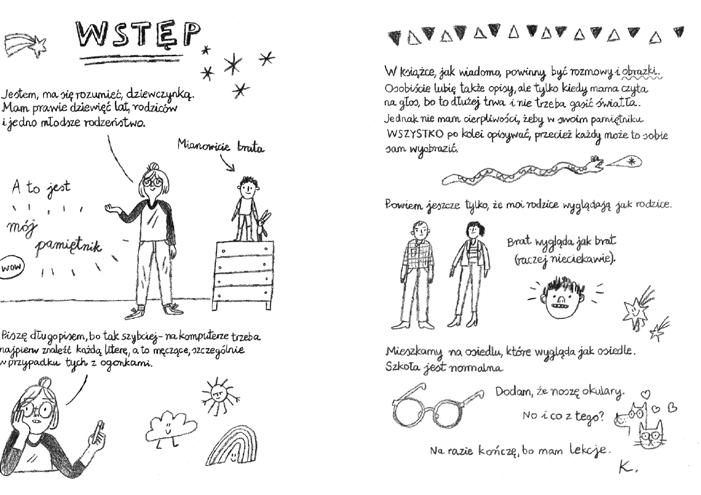 WSTĘP
Jestem, ma się rozumieć, dziewczynką.
Mam prawie dziewięć lat, rodziców
i jedno młodsze rodzeństwo.
Mianowicie brata
A to jest
mój
pamiętnik
WOW
Piszę długopisem, bo tak szybciej – na komputerze trzeba
najpierw znaleźć każdą literę, a to męczące, szczególnie
w przypadku tych z ogonkami.
W książce, jak wiadomo, powinny być rozmowy i obrazki.
Osobiście lubię także opisy, ale tylko kiedy mama czyta
na głos, bo to dłużej trwa i nie trzeba gasić światła.
Jednak nie mam cierpliwości, żeby w swoim pamiętniku
WSZYSTKO po kolei opisywać, przecież każdy może to sobie
sam wyobrazić.
Powiem jeszcze tylko, że moi rodzice wyglądają jak rodzice.
Brat wygląda jak brat
(raczej nieciekawie).
Mieszkamy na osiedlu, które wygląda jak osiedle.
Szkoła jest normalna
Dodam, że noszę okulary.
No i co z tego?
Na razie kończę, bo mam lekcje.
K.